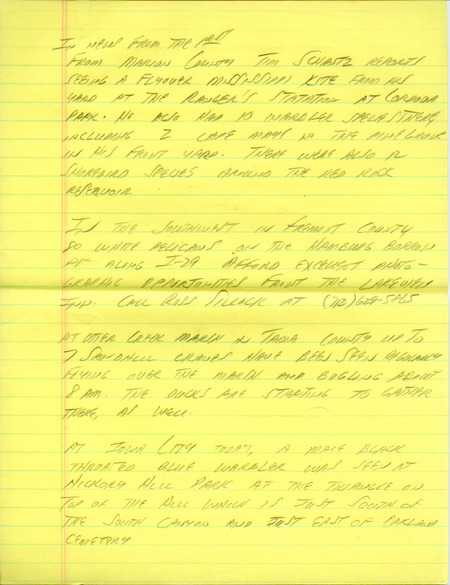 IN NEWS FROM THE PAST
FROM MARION COUNTY TIM SCHANTZ REPORTS
SEEING A FLYOVER MISSISSIPPI KITE FROM HIS
YARD AT THE RANGER'S STATATION AT CORDOVA
PARK. HE ALSO HAD 13 WARBLER SPECIES THERE,
INCLUDING 2 CAPE MAYS IN THE PINE GROVE
IN HIS FRONT YARD. THERE WERE ALSO 12
SHOREBIRD SPECIES AROUND THE RED ROCK
RESERVOIR.
IN THE SOUTHWEST IN FREMONT COUNTY
50 WHITE PELICANS ON THE HAMBURG BORROW
PIT ALONG I-29 AFFORD EXCELLENT PHOTO-
GRAPHIC OPPORTUNITIES FROM THE LAKEVIEW
INN. CALL ROSS AT (712)
AT OTTER CREEK MARSH IN TAMA COUNTY UP TO
7 SANDHILL CRANES HAVE BEEN SEEN REGULARLY
FLYING OVER THE MARSH AND BUGLING ABOUT
8 AM. THE DUCKS ARE STARTING TO GATHER
THERE, AS WELL.
AT IOWA CITY TODAY, A MALE BLACK
THROATED BLUE WARBLER WAS SEEN AT
HICKORY HILL PARK AT THE TRIANGLE ON
TOP OF THE HILL WHICH IS JUST SOUTH OF
THE SOUTH CANYON AND JUST EAST OF OAKLAND
CEMETERY